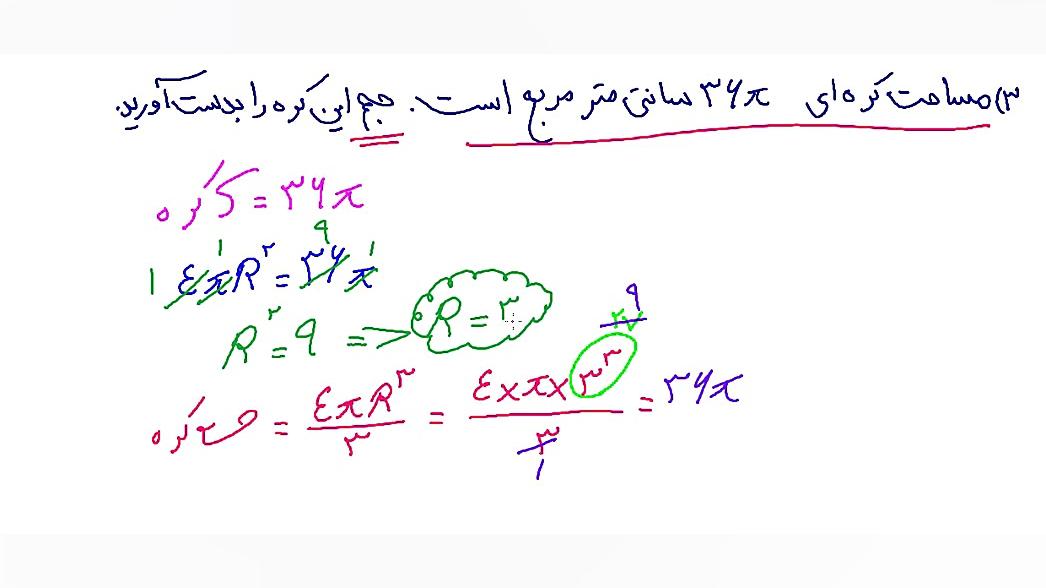 ۳) مساحت کره ای ۳۶π سانتی متر مربع است. حجم این کره را بدست آورید.
S کره = ۳۶π
۱ ۱ ۹ ۱
۴πR^۲ = ۳۶π
R^۲ = ۹ => R = ۳
۹
۲۷
کره = ۴πR^۳/۳ = ۴×π×۳^۳/۳ = ۳۶π
۱